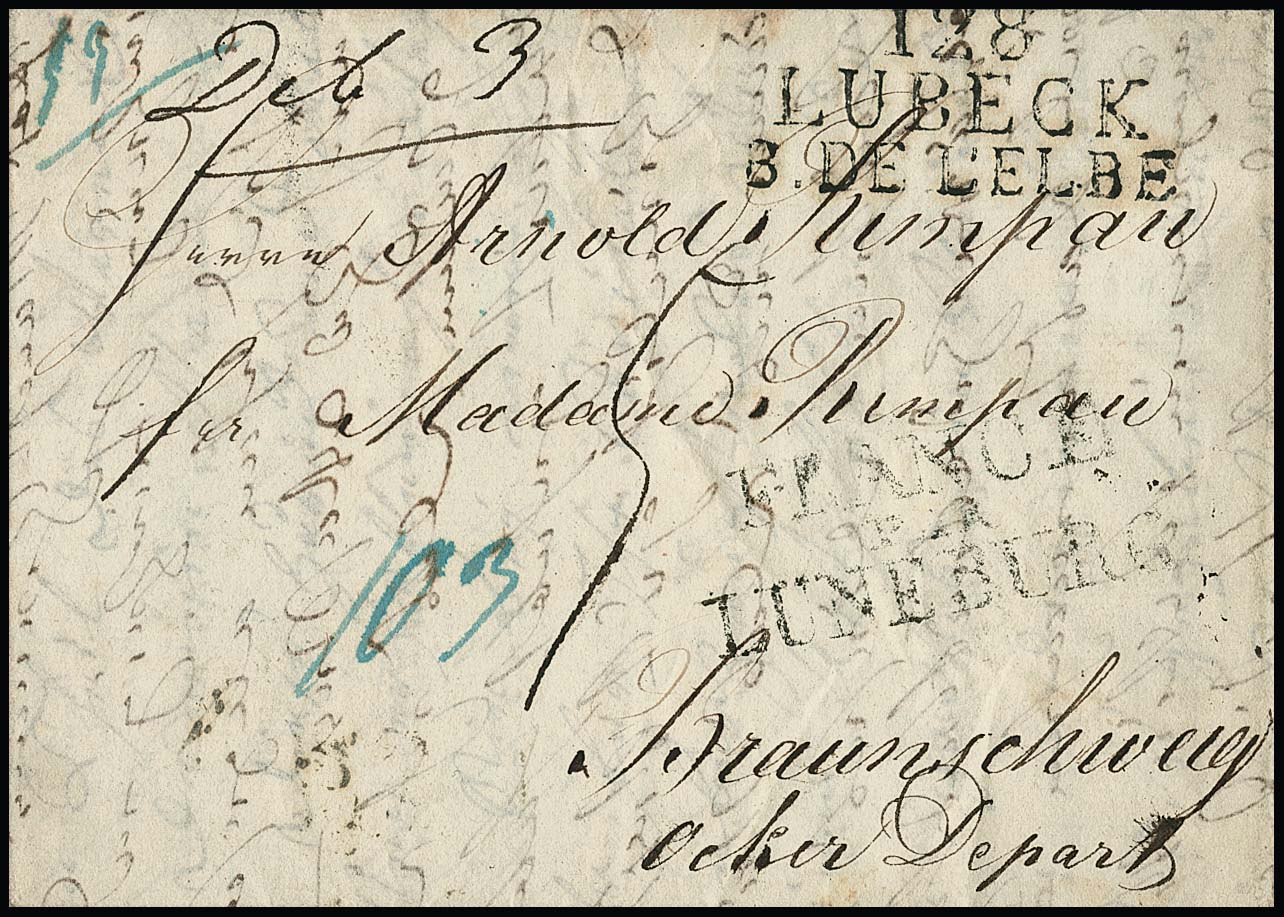 128
LUBECK
B. DE L'ELBE
Deb 3
Herrn Arnold Pumpau
für Madame Pumpau
FRANCO
LUNEBURG
103
Braunschweig
Ocker Depart